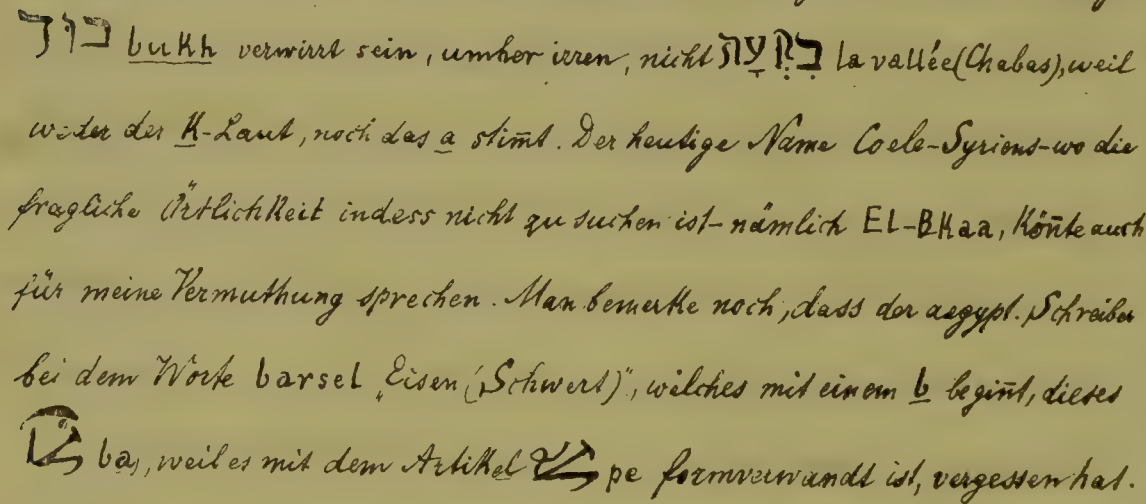 בוך bukh verwirrt sein, umher irren, nicht בִּקְעָה la vallée (Chabas), weil
weder der K-Laut, noch das a stim̄t. Der heutige Name Coele-Syriens - wo die
fragliche Örtlichkeit indess nicht zu suchen ist - nämlich EL-BKaa, kön̄te auch
für meine Vermuthung sprechen. Man bemerke noch, dass der aegypt. Schreiber
bei dem Worte barsel „Eisen (Schwert)", welches mit einem b begin̄t, dieses
ba, weil es mit dem Artikel pe formverwandt ist, vergessen hat.